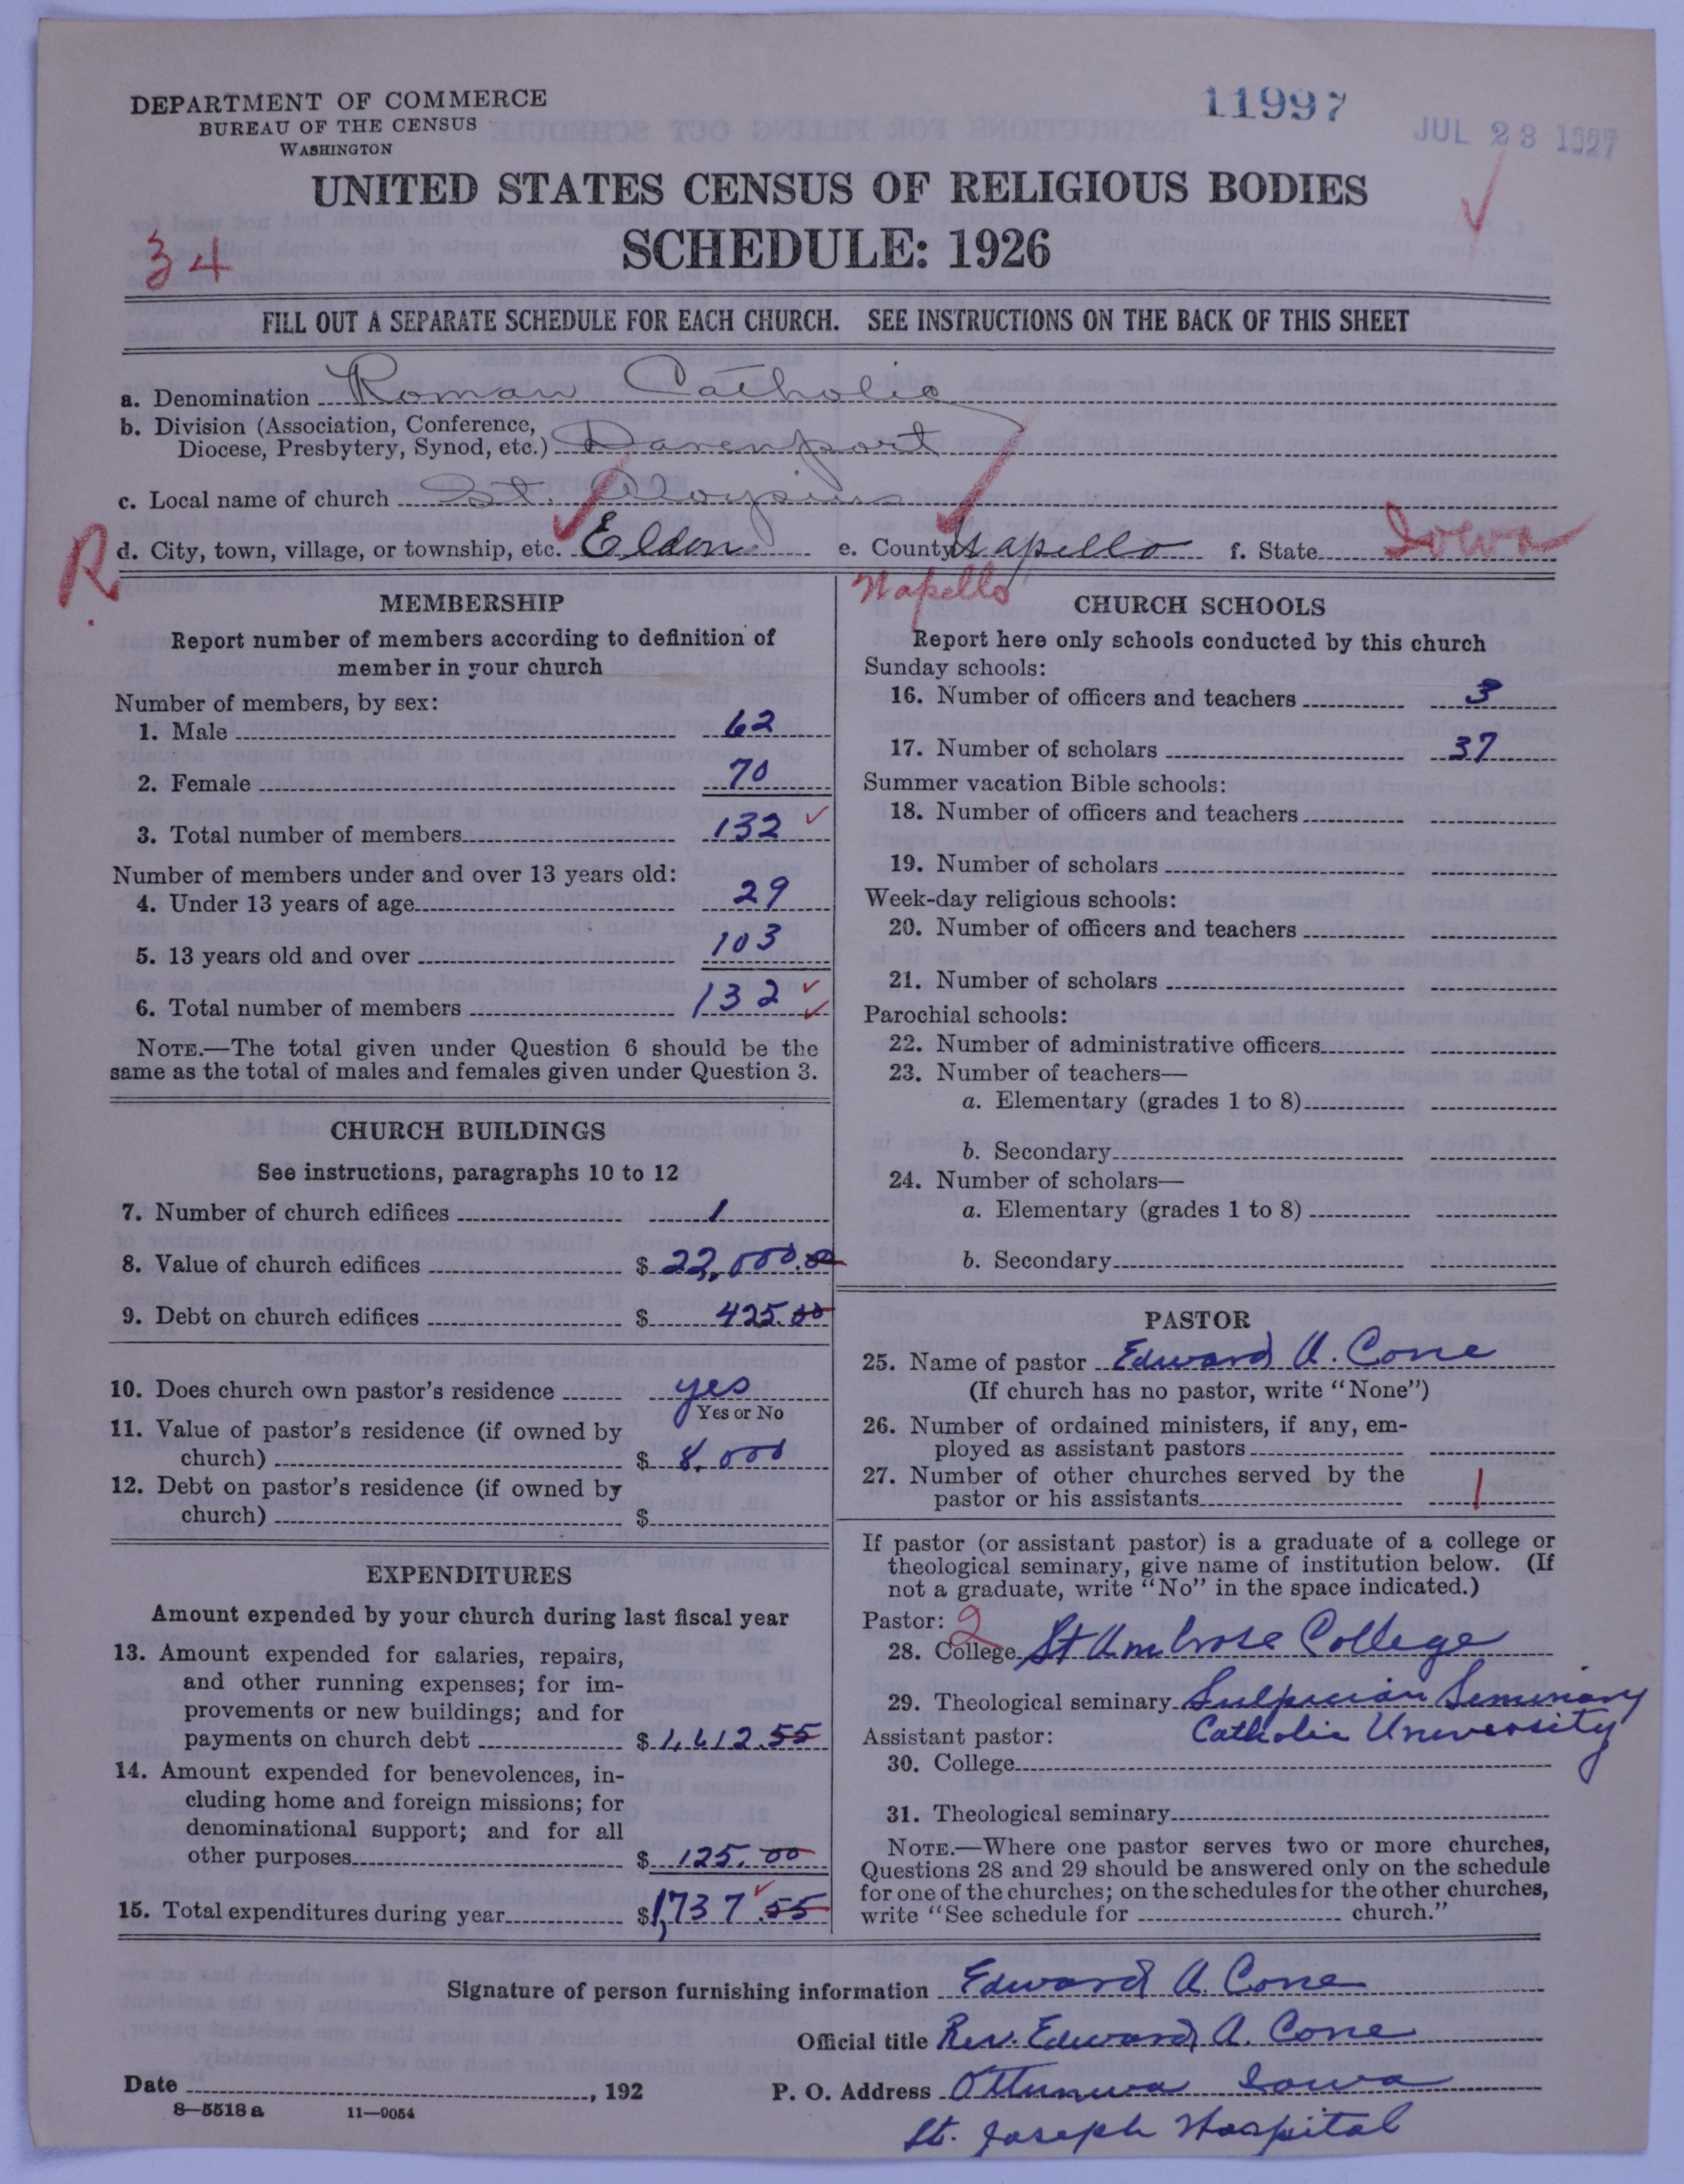 DEPARTMENT OF COMMERCE
BUREAU OF THE CENSUS
WASHINGTON
11997
JUL 23 1927
UNITED STATES CENSUS OF RELIGIOUS BODIES
SCHEDULE: 1926
34
FILL OUT A SEPARATE SCHEDULE FOR EACH CHURCH. SEE INSTRUCTIONS ON THE BACK OF THIS SHEET
a. Denomination Roman Catholic
b. Division (Association, Conference,
Diocese, Presbytery, Synod, etc.) Davenport
c. Local name of church St. Aloysius
R. d. City, town, village, or township, etc. Eldon e. County Wapello f. State Iowa
Wapello
MEMBERSHIP
Report number of members according to definition of
member in your church
Number of members, by sex:
1. Male 62
2. Female 70
3. Total number of members 132
Number of members under and over 13 years old:
4. Under 13 years of age 29
5. 13 years old and over 103
6. Total number of members 132
NOTE.—The total given under Question 6 should be the
same as the total of males and females given under Question 3.
CHURCH BUILDINGS
See instructions, paragraphs 10 to 12
7. Number of church edifices 1
8. Value of church edifices $ 22,000.00
9. Debt on church edifices $ 425.00
10. Does church own pastor's residence yes
Yes or No
11. Value of pastor's residence (if owned by
church) $ 8,000
12. Debt on pastor's residence (if owned by
church) $
EXPENDITURES
Amount expended by your church during last fiscal year
13. Amount expended for salaries, repairs,
and other running expenses; for im-
provements or new buildings; and for
payments on church debt $ 1,612.55
14. Amount expended for benevolences, in-
cluding home and foreign missions; for
denominational support; and for all
other purposes $ 125.00
15. Total expenditures during year $1,737.55
CHURCH SCHOOLS
Report here only schools conducted by this church
Sunday schools:
16. Number of officers and teachers 3
17. Number of scholars 37
Summer vacation Bible schools:
18. Number of officers and teachers
19. Number of scholars
Week-day religious schools:
20. Number of officers and teachers
21. Number of scholars
Parochial schools:
22. Number of administrative officers
23. Number of teachers—
a. Elementary (grades 1 to 8)
b. Secondary
24. Number of scholars—
a. Elementary (grades 1 to 8)
b. Secondary
PASTOR
25. Name of pastor Edward A. Cone
(If church has no pastor, write "None")
26. Number of ordained ministers, if any, em-
ployed as assistant pastors
27. Number of other churches served by the
pastor or his assistants 1
If pastor (or assistant pastor) is a graduate of a college or
theological seminary, give name of institution below. (If
not a graduate, write "No" in the space indicated.)
Pastor: 2
28. College St Ambrose College
29. Theological seminary Sulpician Seminary
Assistant pastor: Catholic University
30. College
31. Theological seminary
NOTE.—Where one pastor serves two or more churches,
Questions 28 and 29 should be answered only on the schedule
for one of the churches; on the schedules for the other churches,
write "See schedule for church."
Signature of person furnishing information Edward A. Cone
Official title Rev. Edward A. Cone
Date , 192 P. O. Address Ottumwa Iowa
8—5518 a 11—9054
St. Joseph Hospital